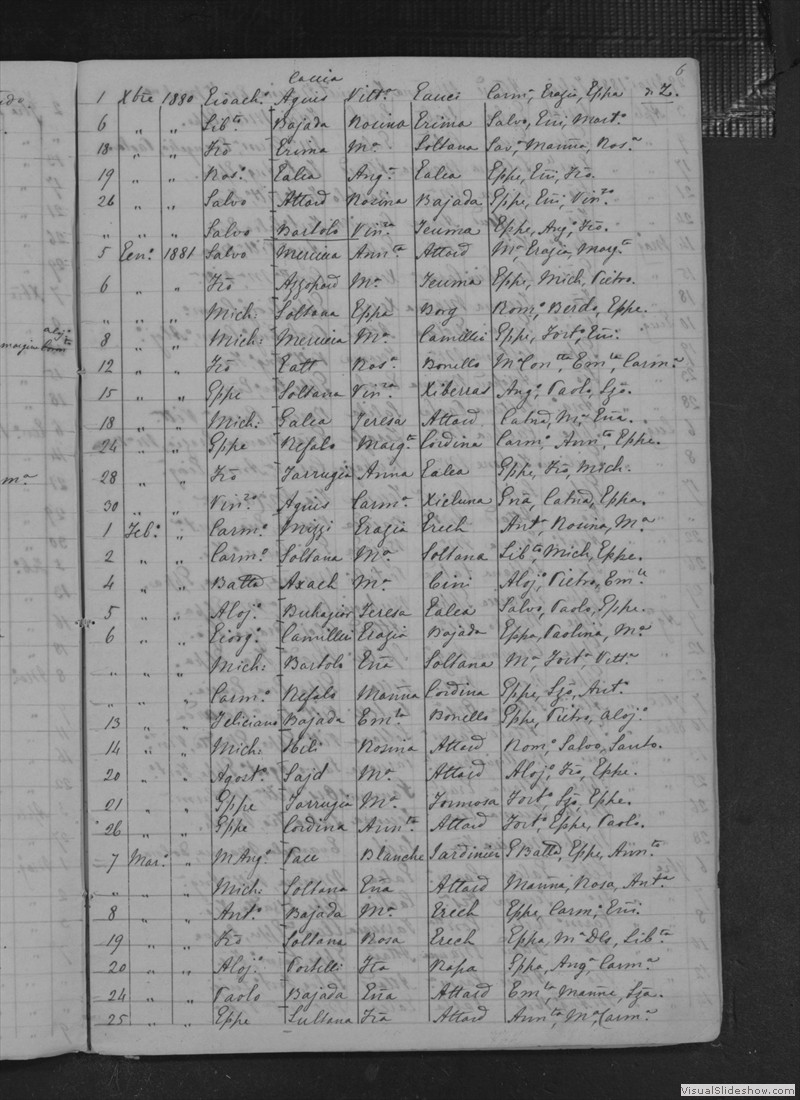 6
Caccia
1 Xbre 1880 Gioach.o Agius Vitt.a Gauci Carm.o, Grazia, Eppa di Z.
6 „ „ Lib.to Bajada Rosina Grima Salvo, Em̃i, Mart.o
18 „ „ Frõ Grima M.a Soltana Sav.o, Mañña, Ros.a
19 „ „ Ros.o Galea Ang.a Galea Eppe, Em̃i, Frõ.
26 „ „ Salvo Attard Rosina Bajada Eppe, Em̃i, Vin.zo
„ „ „ Salvo Bartolo Vin.za Zeuma Eppe, Ang.o, Frõ.
5 Gen.o 1881 Salvo Mercieca Ann.ta Attard M.a, Grazia, Marg.ta
6 „ „ Frõ Azzopard M.a Zeuma Eppe, Mich, Pietro.
„ „ „ Mich: Soltana Eppa Borg Rom.o, Berdo, Eppe.
8 „ „ Mich: Mercieca M.a Camilleri Eppe, Fort.o, Em̃i.
12 „ „ Frõ Gatt Ros.a Bonello M.a Con.tta, Em.la, Carm.a
15 „ „ Eppe Soltana Vin.za Xiberras Ang.o, Paolo, Lzõ.
18 „ „ Mich: Galea Teresa Attard Catña, M.a, Eña.
24 „ „ Eppe Refalo Marg.ta Cordina Carm.o, Ann.ta, Eppe.
28 „ „ Frõ Farrugia Anna Galea Eppe, Frõ, Mich.
30 „ „ Vin.zo Agius Carm.a Xicluna Gña, Catña, Eppa.
1 Feb.o „ Carm.o Mizzi Grazia Grech Ant.a, Rosina, M.a
2 „ „ Carm.o Soltana M.a Soltana Lib.to, Mich, Eppe.
4 „ „ Batta Axach M.a Cini Aloj.o, Pietro, Em.le
5 „ „ Aloj.o Buhagiar Teresa Galea Salvo, Paolo, Eppe.
6 „ „ Giorg.o Camilleri Grazia Bajada Eppa, Paolina, M.a
„ „ „ Mich: Bartolo Eña Soltana M.a, Fort.a, Vitt.a
„ „ „ Carm.o Refalo Mañña Cordina Eppe, Lzõ, Ant.o
13 „ „ Feliciano Bajada Em.la Bonello Eppe, Pietro, Aloj.o
14 „ „ Mich: Hili Rosina Attard Rom.o, Salvo, Santo.
20 „ „ Agost.o Sajd M.a Attard Aloj.o, Frõ, Eppe.
21 „ „ Eppe Farrugia M.a Formosa Fort.o, Lzõ, Eppe.
26 „ „ Eppe Cordina Ann.ta Attard Fort.o, Eppe, Paolo.
7 Mar.o „ M Ang.o Pace Blanche Jardinier G Batta, Eppe, Ann.ta
„ „ „ Mich: Soltana Eña Attard Mañña, Rosa, Ant.a
8 „ „ Ant.o Bajada M.a Grech Eppe, Carm.o, Em̃i.
19 „ „ Frõ Soltana Rosa Grech Eppa, M.a Dls, Lib.ta
20 „ „ Aloj.o Portelli Ita Rapa Eppa, Ang.a Carm.a
24 „ „ Paolo Bajada Eña Attard Em.la, Mañña, Lza.
25 „ „ Eppe Sultana Fra Attard Ann.ta, M.a, Carm.a
VisualSlideshow.com